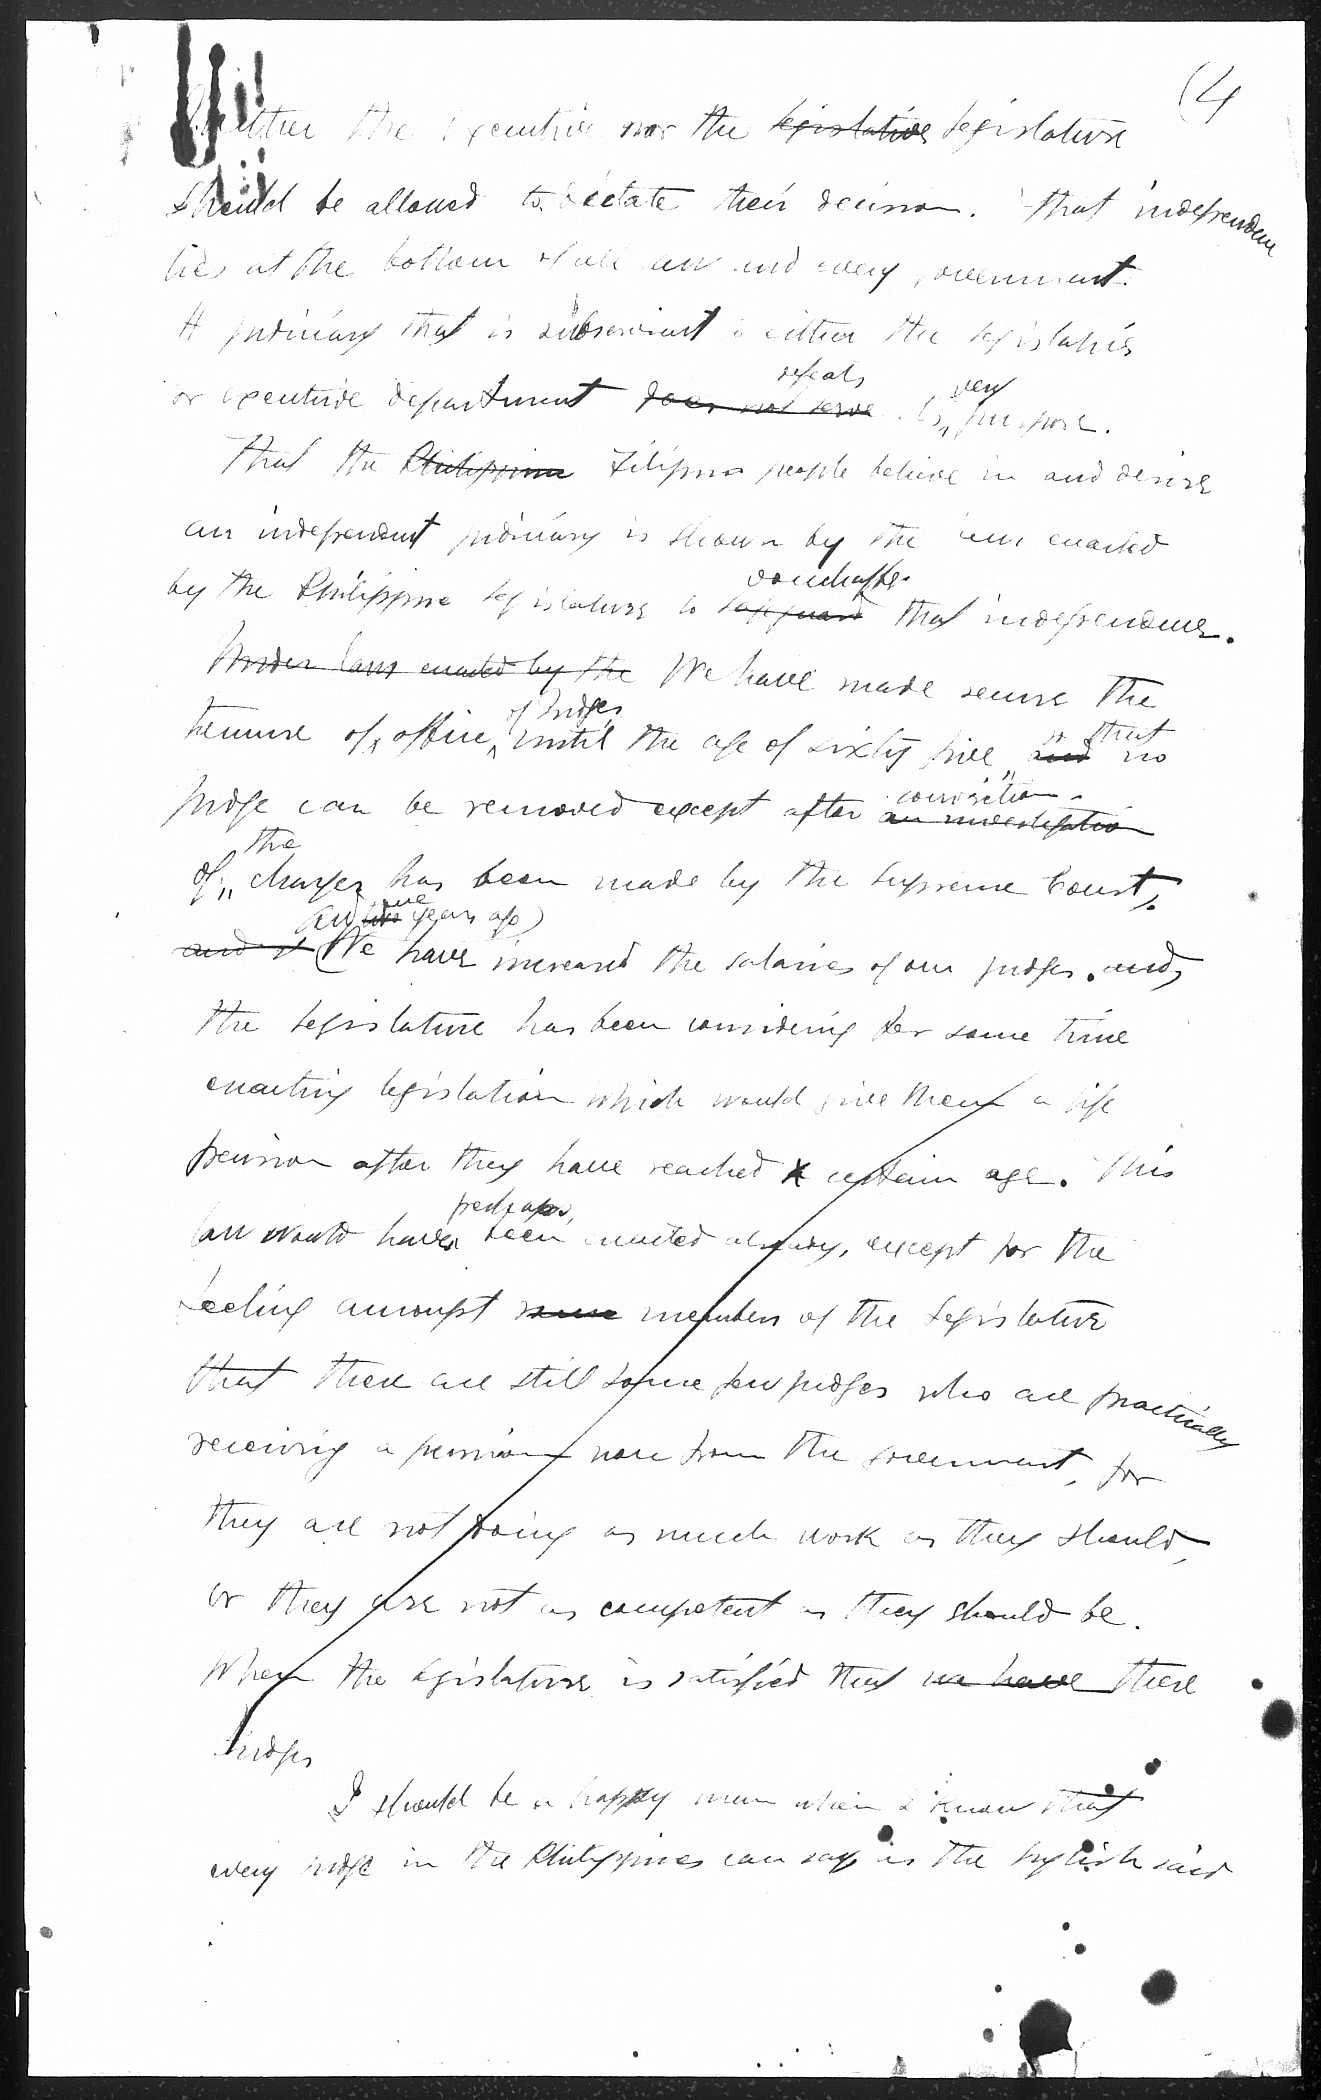 (4
Neither the Executive nor the legislative Legislature
should be allowed to dictate their decision. That independence
lies at the bottom of all law and every government.
A judiciary that is subservient to either the legislative
or executive department does not serve defeats its very purpose.
That the Philippine Filipino people believe in and desire
an independent judiciary is shown by the laws enacted
by the Philippine Legislature to safeguard vouchsafe that independence.
Under laws enacted by the We have made secure the
tenure of office of judges until the age of sixty five and so that no
judge can be removed except after an investigation conviction
of the charges has been made by the Supreme Court.
and (We have increased the salaries of our judges. and,
the Legislature has been considering for some time
enacting legislation which would give them a life
pension after they have reached a certain age. This
law would have perhaps, been enacted already, except for the
feeling amongst some members of the Legislature
that there are still some few judges who are practically
receiving a pension now from the government, for
they are not doing as much work as they should,
or they are not as competent as they should be.
When the legislature is satisfied that we have these
judges
I should be a happy man when I know that
every judge in the Philippines can say as the English said